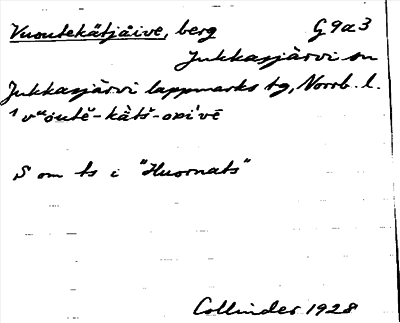 Vuoutekätjåive, berg G9a3
Jukkasjärvi sn
Jukkasjärvi lappmarks tg, Norrb. l.
S om ts i "Huornats"
Collinder 1928